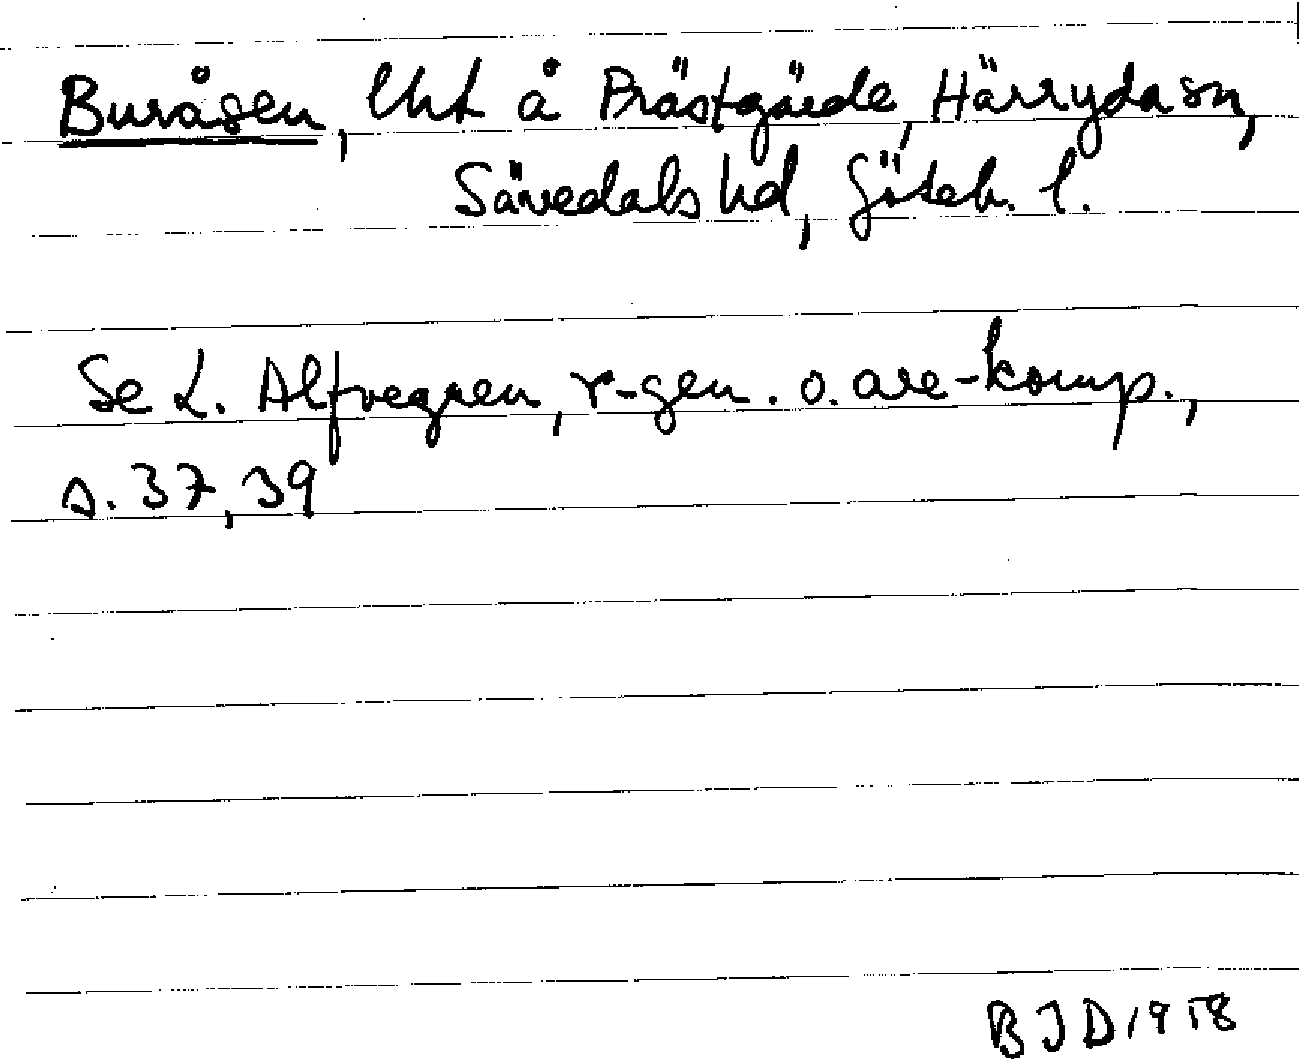 Buråsen, lht å Prästgärde, Härryda sn,
Sävedals hd, Göteb. l.
Se L. Alfvegren, r-gen. o. are-komp.,
s. 37, 39
BJD 1958